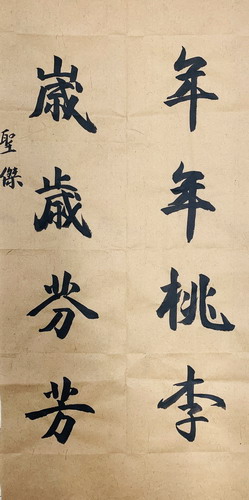 年年桃李
歲歲芬芳
聖傑